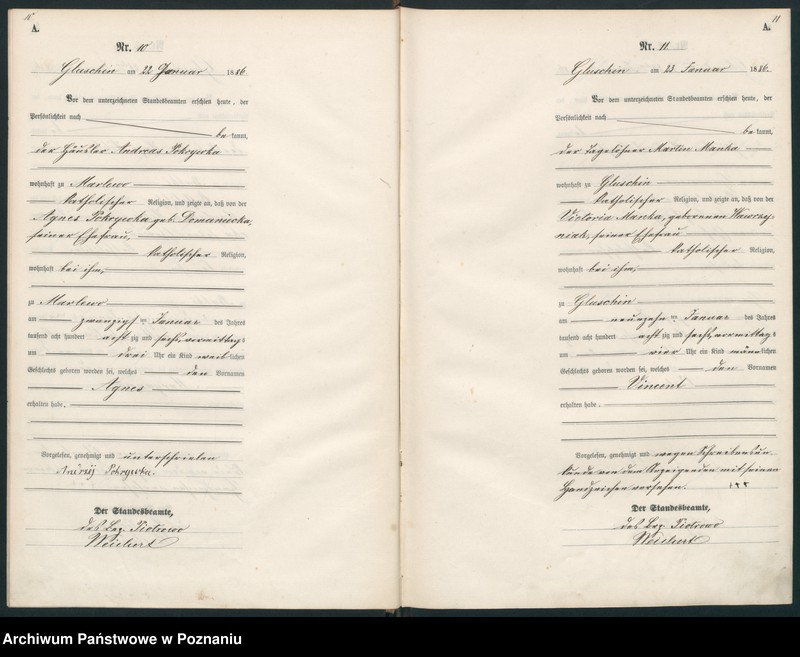 10
A.
Nr. 10
Gluschin am 22 Januar 1886
Vor dem unterzeichneten Standesbeamten erschien heute, der
Persönlichkeit nach
be kannt,
der Häusler Andreas Pokrywka
wohnhaft zu Marlewo
katholischer Religion, und zeigte an, daß von der
Agnes Pokrywka geb. Domanicka,
seiner Ehefrau,
katholischer Religion,
wohnhaft bei ihm,
zu Marlewo
am zwanzigsten Januar des Jahres
tausend acht hundert acht zig und sechs, vormittags
um drei Uhr ein Kind weiblichen
Geschlechts geboren worden sei, welches den Vornamen
Agnes
erhalten habe.
Vorgelesen, genehmigt und unterschrieben
Andrzéj Pokrywka.
Der Standesbeamte,
des Bez. Piotrowo
Weichert
11
A.
Nr. 11
Gluschin am 23 Januar 1886.
Vor dem unterzeichneten Standesbeamten erschien heute, der
Persönlichkeit nach
be kannt,
der Tagelöhner Martin Manka
wohnhaft zu Gluschin
katholischer Religion, und zeigte an, daß von der
Victoria Manka, geborenen Wawrzy-
niak, seiner Ehefrau
katholischer Religion,
wohnhaft bei ihm,
zu Gluschin
am neunzehnten Januar des Jahres
tausend acht hundert acht zig und sechs, vormittags
um vier Uhr ein Kind männlichen
Geschlechts geboren worden sei, welches den Vornamen
Vincent
erhalten habe.
Vorgelesen, genehmigt und wegen Schreibensun-
kunde von dem Anzeigenden mit seinem
Handzeichen versehen. +++
Der Standesbeamte,
des Bez. Piotrowo
Weichert
Archiwum Państwowe w Poznaniu